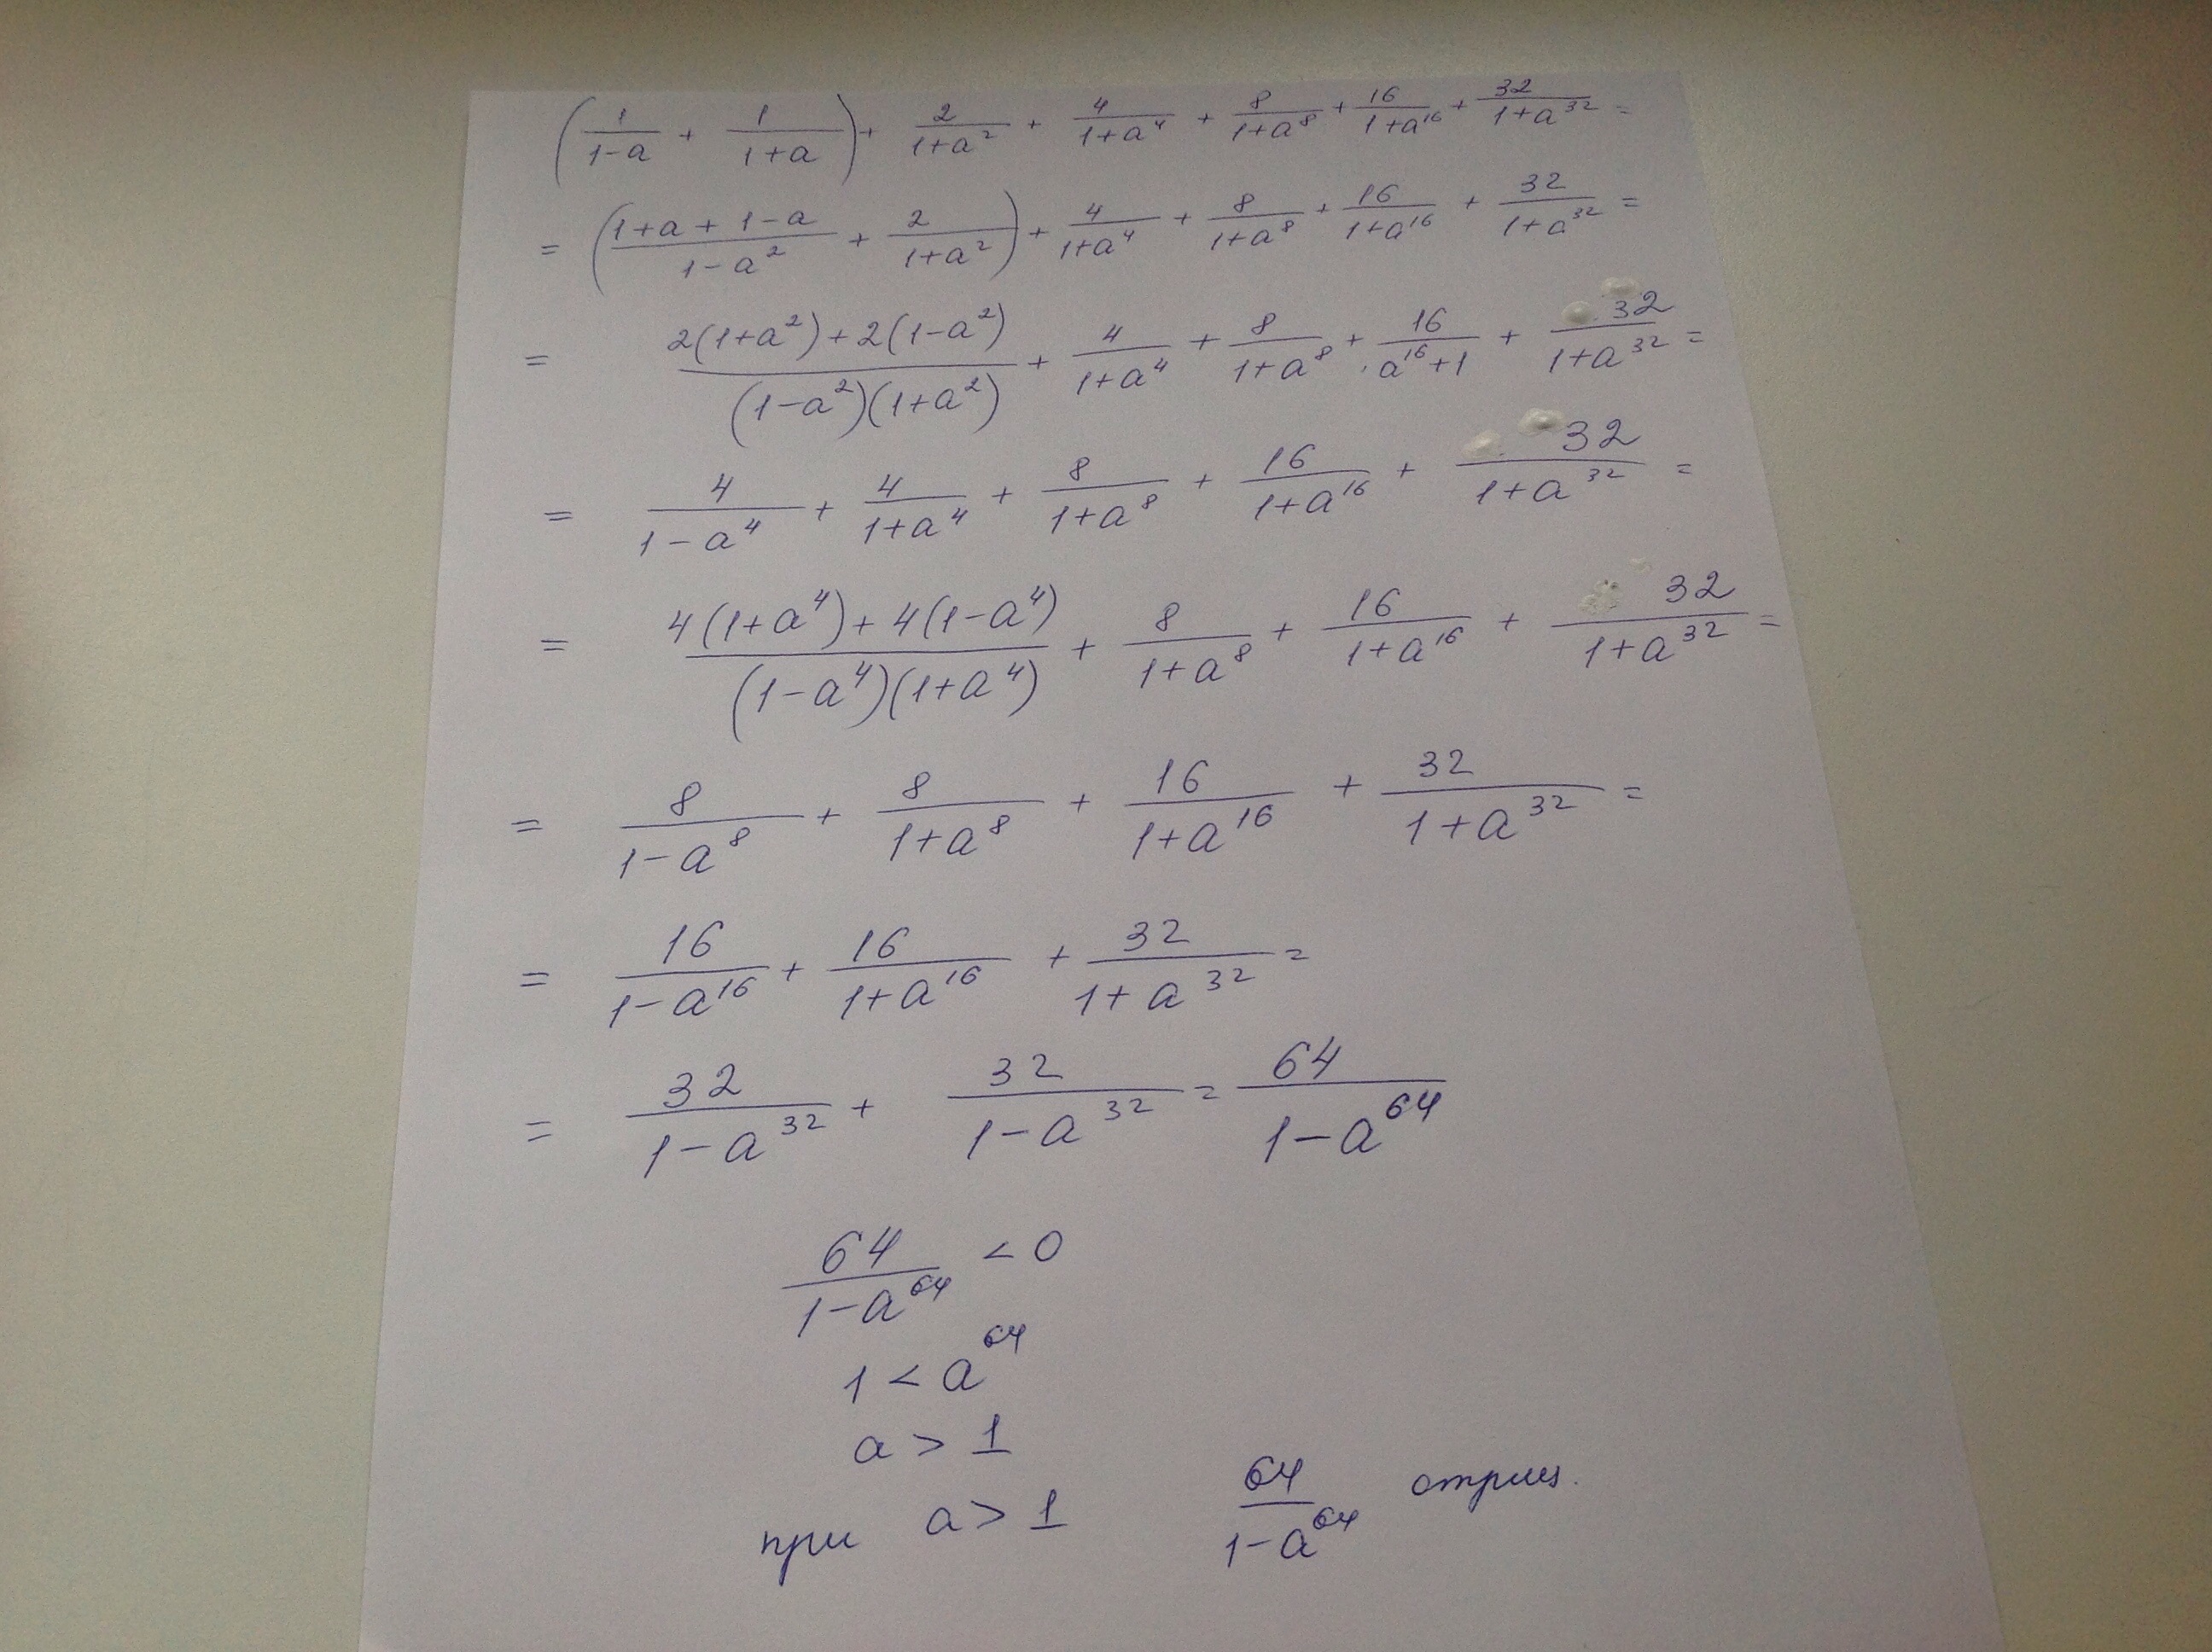 (1/(1-a) + 1/(1+a)) + 2/(1+a²) + 4/(1+a⁴) + 8/(1+a⁸) + 16/(1+a¹⁶) + 32/(1+a³²) =
= ((1+a+1-a)/(1-a²) + 2/(1+a²)) + 4/(1+a⁴) + 8/(1+a⁸) + 16/(1+a¹⁶) + 32/(1+a³²) =
= (2(1+a²)+2(1-a²))/((1-a²)(1+a²)) + 4/(1+a⁴) + 8/(1+a⁸) + 16/(a¹⁶+1) + 32/(1+a³²) =
= 4/(1-a⁴) + 4/(1+a⁴) + 8/(1+a⁸) + 16/(1+a¹⁶) + 32/(1+a³²) =
= (4(1+a⁴)+4(1-a⁴))/((1-a⁴)(1+a⁴)) + 8/(1+a⁸) + 16/(1+a¹⁶) + 32/(1+a³²) =
= 8/(1-a⁸) + 8/(1+a⁸) + 16/(1+a¹⁶) + 32/(1+a³²) =
= 16/(1-a¹⁶) + 16/(1+a¹⁶) + 32/(1+a³²) =
= 32/(1-a³²) + 32/(1-a³²) = 64/(1-a⁶⁴)
64/(1-a⁶⁴) < 0
1 < a⁶⁴
a > 1
при a > 1 64/(1-a⁶⁴) отриц.